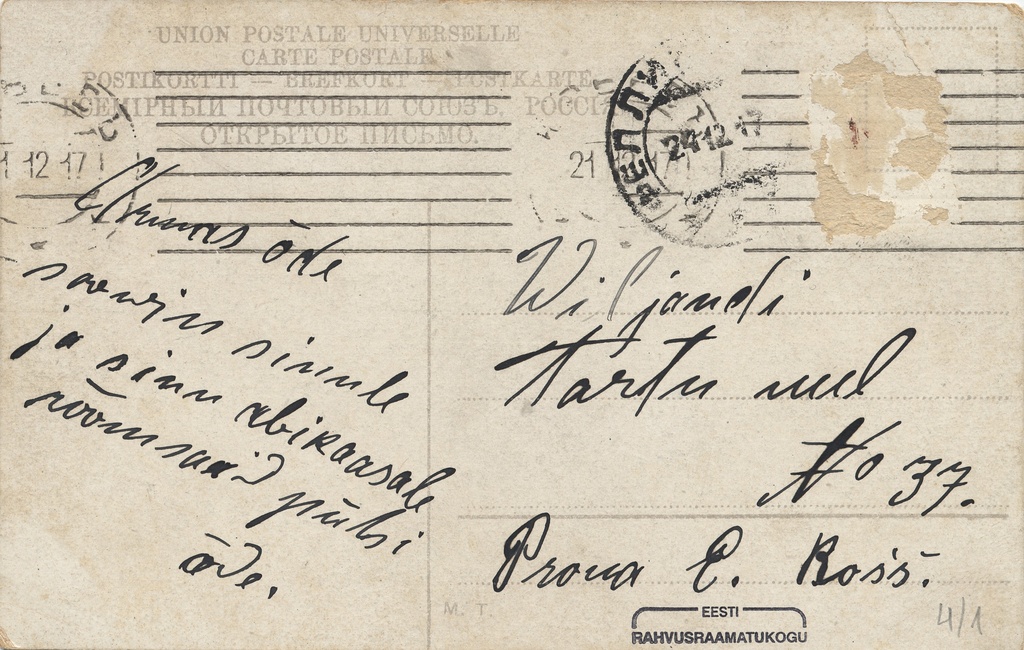 UNION POSTALE UNIVERSELLE
CARTE POSTALE
POSTIKORTTI — BREFKORT — POSTKARTE
ВСЕМІРНЫЙ ПОЧТОВЫЙ СОЮЗЪ. РОССІЯ
ОТКРЫТОЕ ПИСЬМО.
1 12 17
21
ФЕЛЛИ
24 12 17
Armas õde
soowin sinule
ja sinu abikaasale
rõõmsaid pühi
õde.
Wiljandi
Tartu uul
No 37.
Proua E. Róśś.
M. T.
EESTI
RAHVUSRAAMATUKOGU
4/1